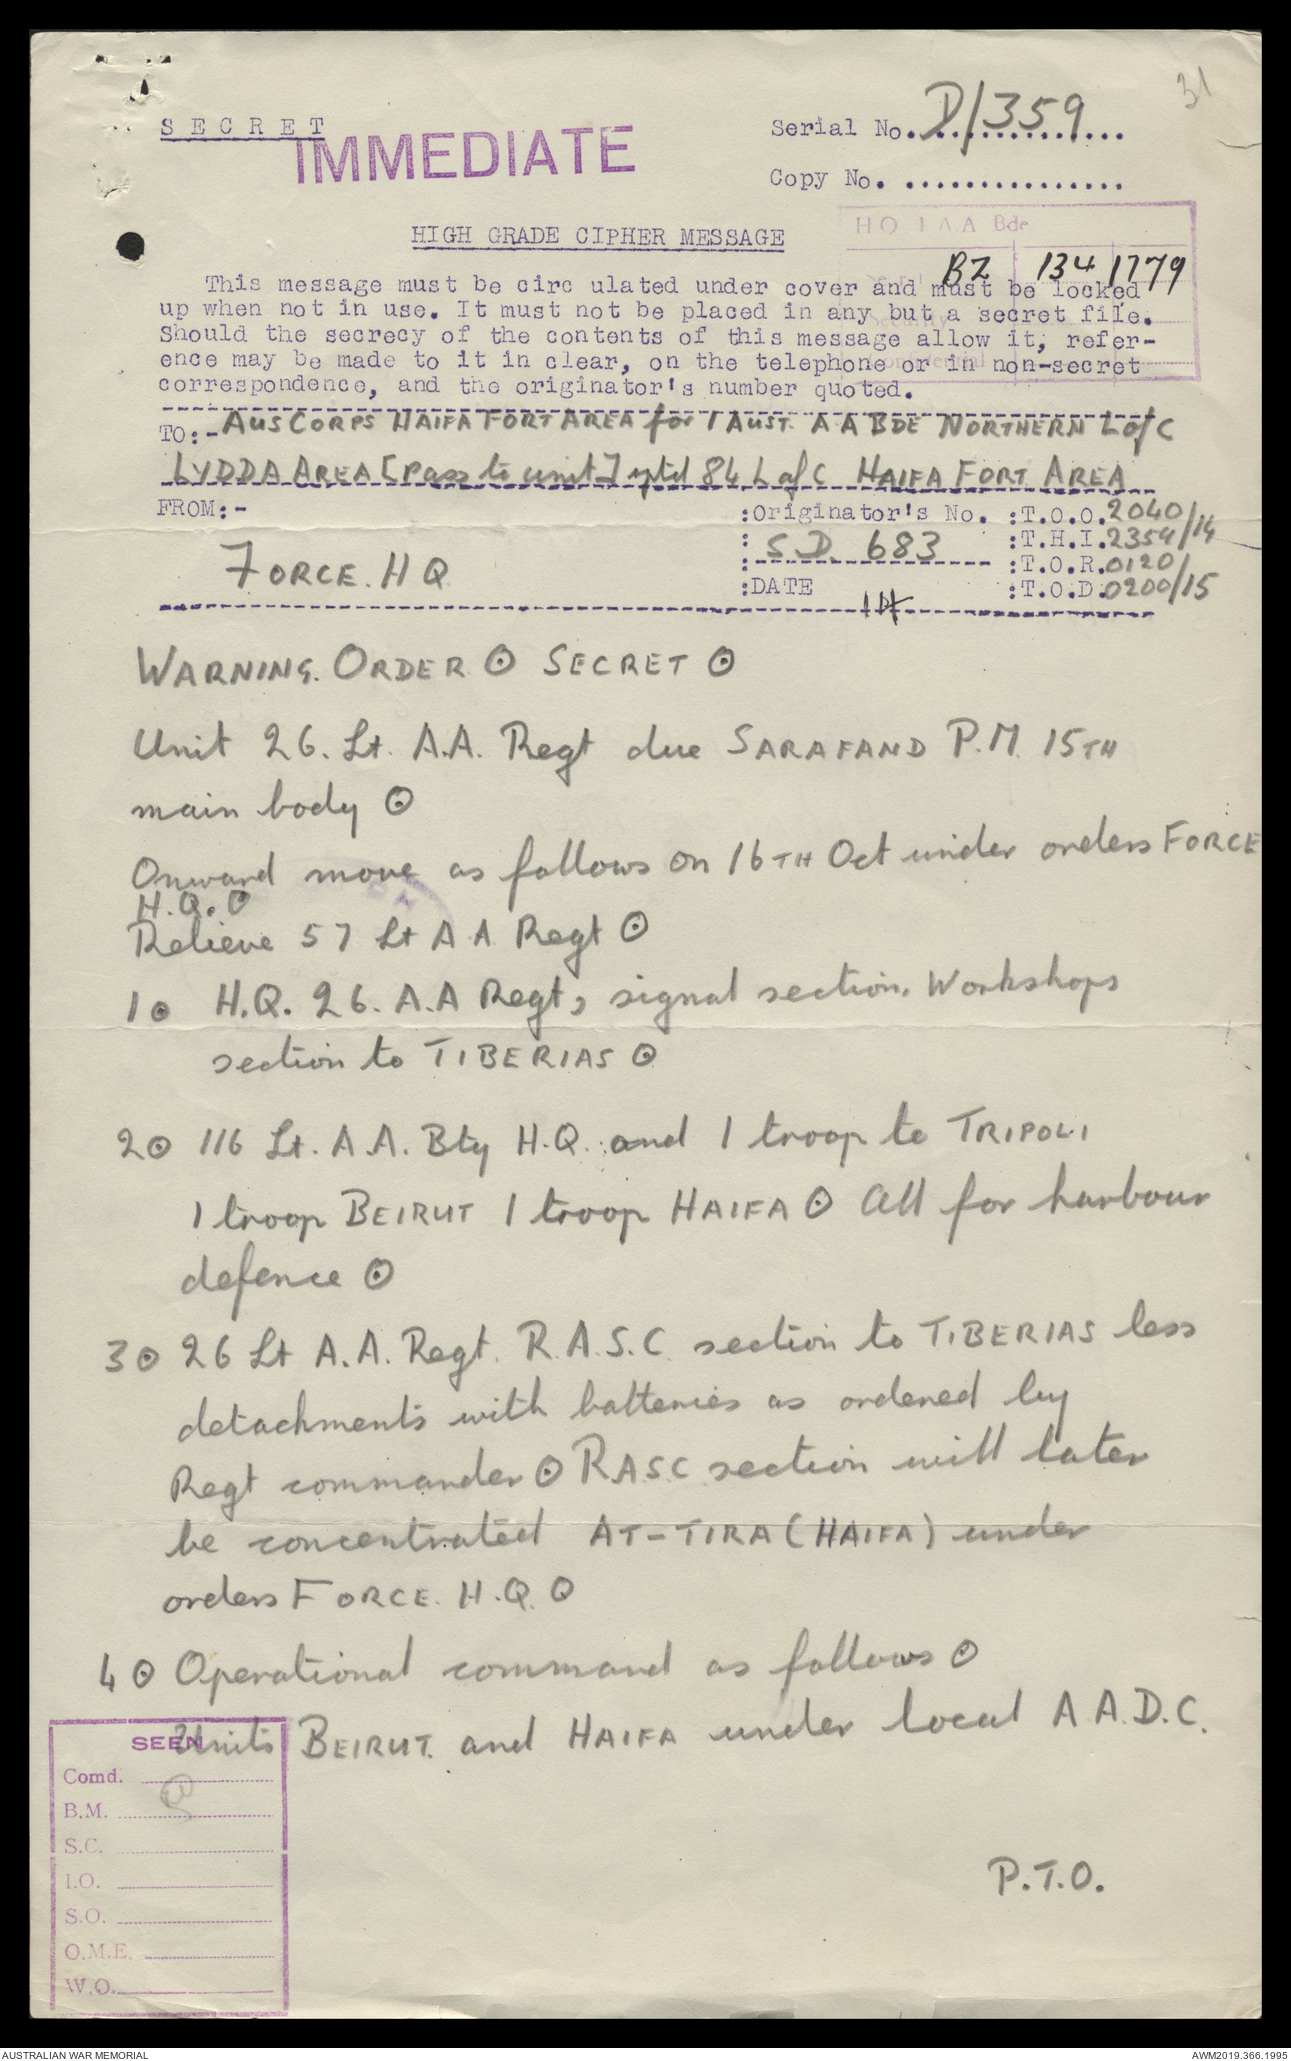 31
SECRET
IMMEDIATE
Serial No. D/359
Copy No. ................
HQ 1 AA Bde
HIGH GRADE CIPHER MESSAGE
BZ 134 1779
This message must be circ ulated under cover and must be locked
up when not in use. It must not be placed in any but a secret file.
Should the secrecy of the contents of this message allow it, refer-
ence may be made to it in clear, on the telephone or in non-secret
correspondence, and the originator's number quoted.
TO:- AUSCORPS HAIFA FORT AREA for 1 AUST. A A BDE NORTHERN L of C
LYDDA AREA [Pass to unit] rptd 84 L of C HAIFA FORT AREA
FROM:-
FORCE. H Q
:Originator's No. :T.O.O. 2040/14
: S.D. 683 :T.H.I. 2359/14
:T.O.R. 0120/
:DATE 14 :T.O.D. 0200/15
WARNING. ORDER ⊙ SECRET ⊙
Unit 26. Lt. A.A. Regt due SARAFAND P.M. 15TH
main body ⊙
Onward move as follows on 16TH Oct under orders FORCE
H.Q. ⊙
Relieve 57 Lt A A Regt ⊙
1 ⊙ H.Q. 26. A.A Regt, signal section, Workshops
section to TIBERIAS ⊙
2 ⊙ 116 Lt. A.A. Bty H.Q. and 1 troop to TRIPOLI
1 troop BEIRUT 1 troop HAIFA ⊙ All for harbour
defence ⊙
3 ⊙ 26 Lt A.A. Regt. R.A.S.C. section to TIBERIAS less
detachments with batteries as ordered by
Regt commander ⊙ RASC section will later
be concentrated AT-TIRA (HAIFA) under
orders FORCE. H.Q. ⊙
4 ⊙ Operational command as follows ⊙
Units BEIRUT. and HAIFA under local A A.D.C.
SEEN
Comd.
B.M.
S.C.
I.O.
S.O.
O.M.E.
W.O.
P.T.O.
AUSTRALIAN WAR MEMORIAL
AWM2019.366.1995